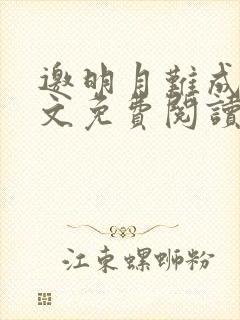 邀明月難成
文免費閱讀
江東螺螄粉